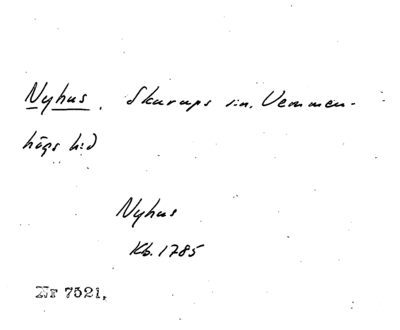 Nyhus. Skurups sn. Vemmen-
högs hd
Nyhus
Kb. 1785
Nr 7521.